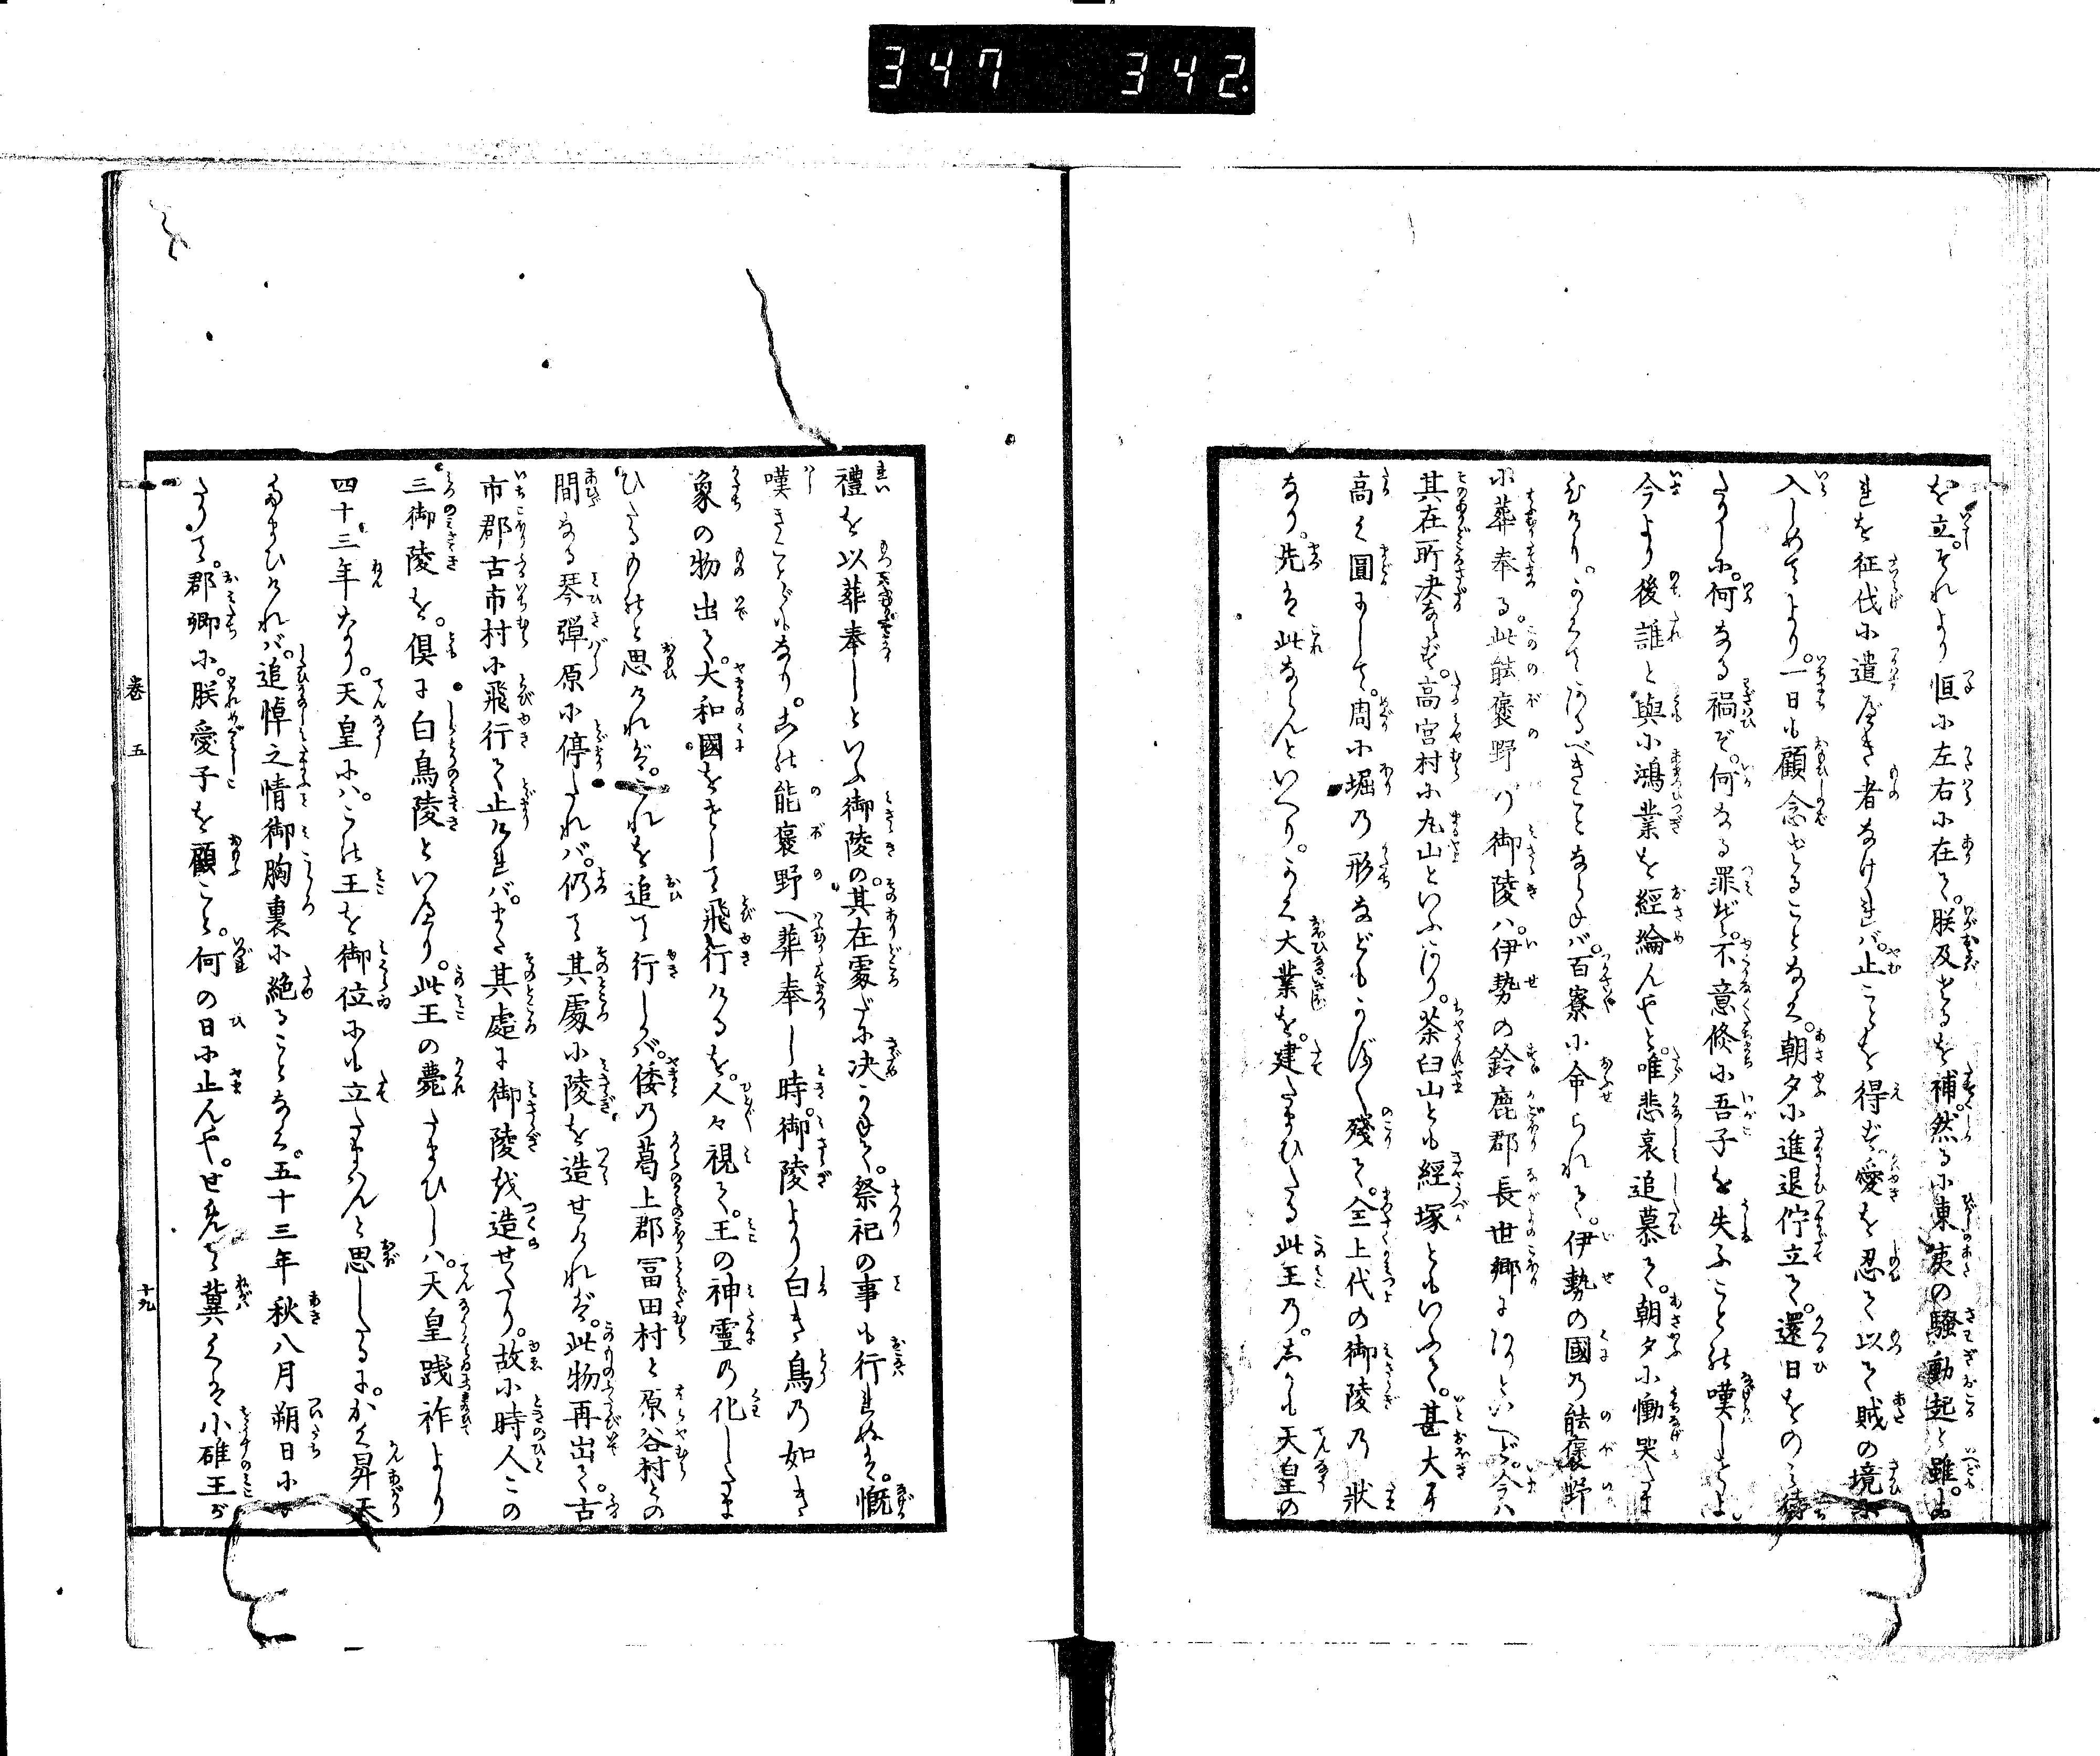 347 342.
を立。それより恒に左右に在て。朕及ざるを補。然るに東夷の騒動起と雖。
れを征伐に遣べき者なければ。止ことを得ず。愛を忍て以て賊の境に
入しめてより。一日も顧念せざることなく。朝夕に進退佇立て。還日をのみ待
たりしに。何なる禍ぞ。何なる罪ぞ。不意倏に吾子を失ふことの嘆しさよ。
今より後誰と與に鴻業を經綸んやと。唯悲哀追慕て。朝夕に慟哭たま
ひけり。かくてあるべきことならねば。百寮に命られて。伊勢の國乃能褒野
に葬奉る。此能褒野の御陵ハ。伊勢の鈴鹿郡長世郷にありといへど。今ハ
其在所決ならず。高宮村に丸山といふあり。茶臼山とも經塚ともいふて。甚大に
高く圓にして。周に堀乃形などもかすかに殘て。全上代の御陵乃狀
なり。先は此ならんといへり。かく大業を。建たまひたる此王乃。しかも天皇の
禮を以葬奉しといふ御陵の。其在處だに決かねて。祭祀の事も行れぬは。慨
嘆きことどもなり。この能褒野へ葬奉し時。御陵より白き鳥乃如き
象の物出て。大和國をさして飛行けるを。人々視て。王の神靈の化したま
ひたるものと思ければ。これを追て行しかバ。倭乃葛上郡冨田村と原谷村との
間なる琴彈原に停たれバ。仍て其處に陵を造せければ。此物再出て。古
市郡古市村に飛行て止けれバ。また其處に御陵を造せたり。故に時人この
三御陵を。倶に白鳥陵といへり。此王の薨たまひしハ。天皇践祚より
四十三年なり。天皇にハ。この王を御位にも立たまはんと思したるに。かく昇天
たまひけれバ。追悼之情御胸裏に絶ることなく。五十三年秋八月朔日に
郡卿に。朕愛子を顧こと。何の日に止んや。せめて冀くは小碓王が
巻五
十九